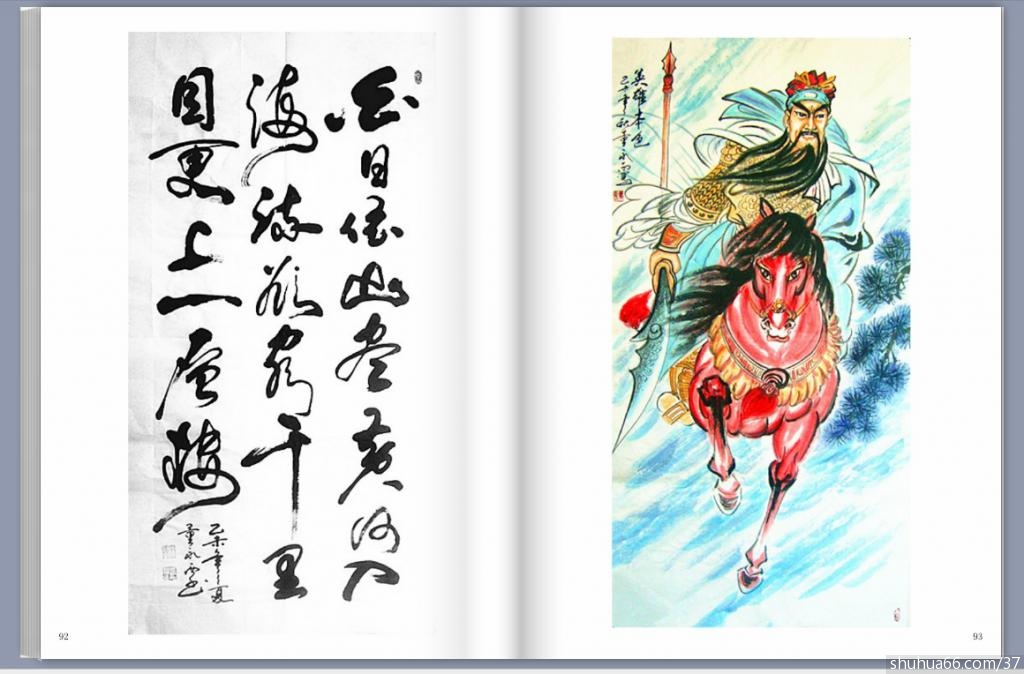 白日依山盡黄河入
海流欲窮千里
目更上一層樓
乙未年夏
英雄本色
92
93
shuhua66.com/37